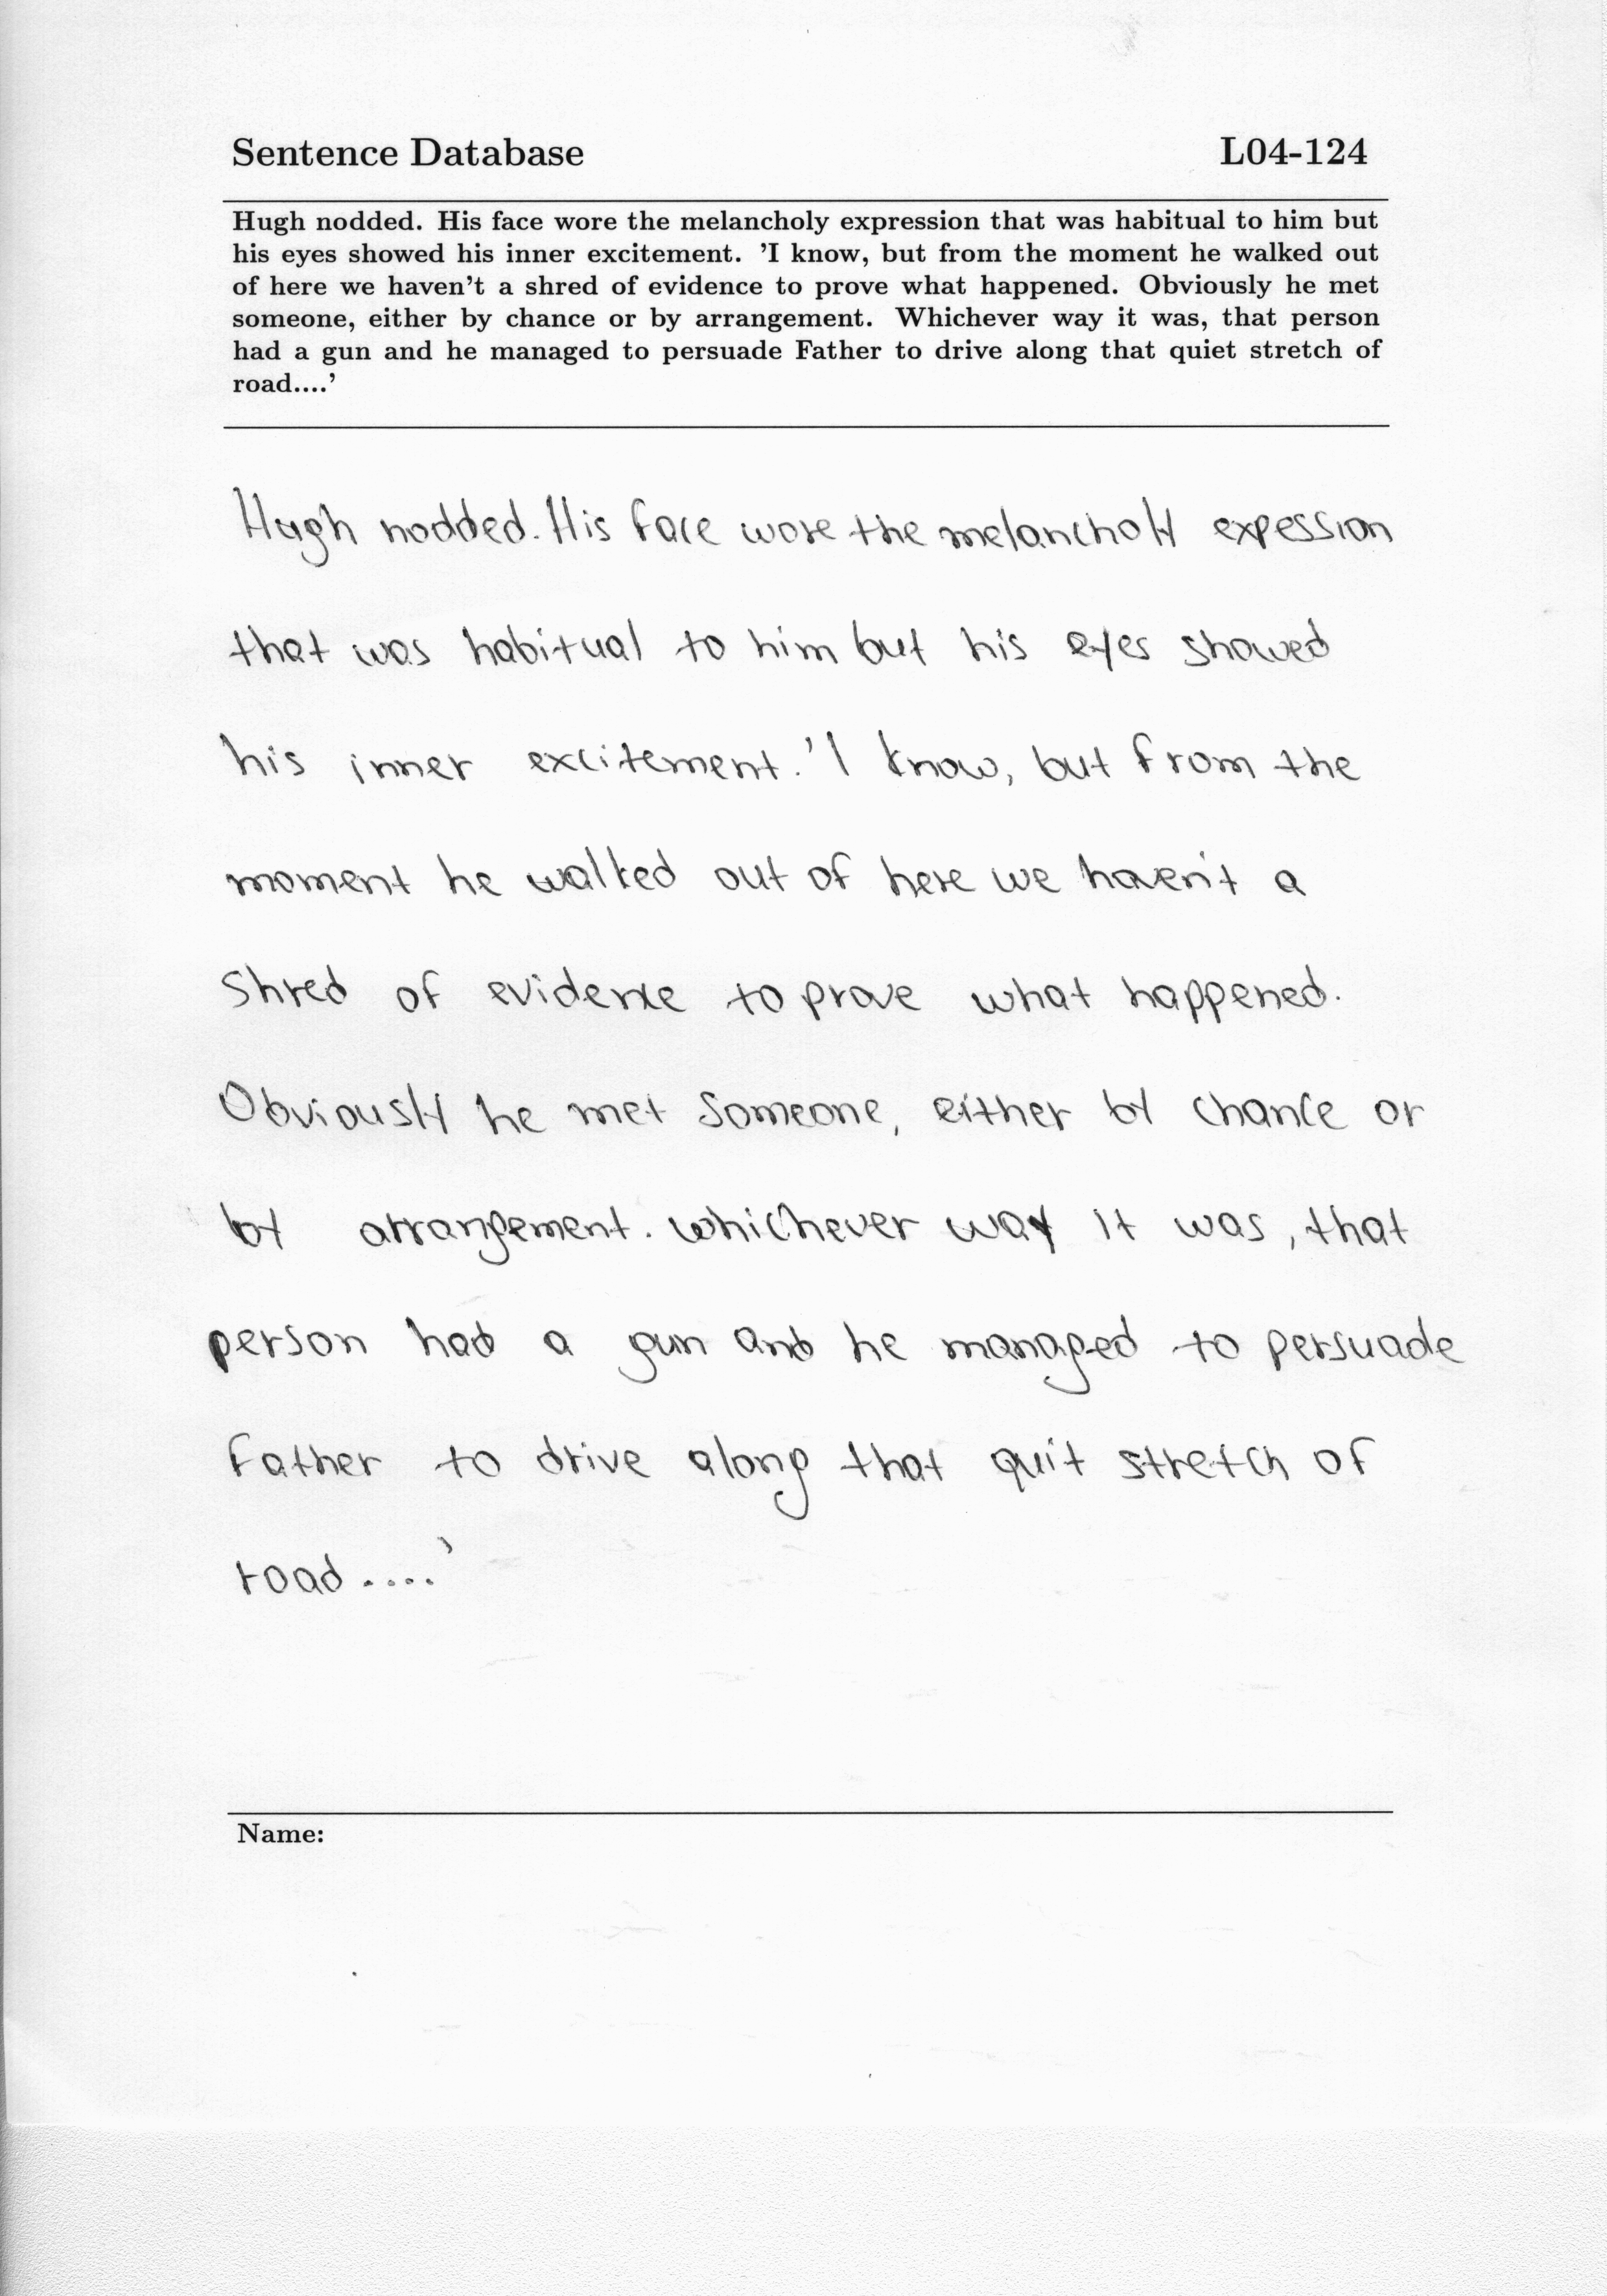 Sentence Database L04-124
Hugh nodded. His face wore the melancholy expression that was habitual to him but
his eyes showed his inner excitement. 'I know, but from the moment he walked out
of here we haven't a shred of evidence to prove what happened. Obviously he met
someone, either by chance or by arrangement. Whichever way it was, that person
had a gun and he managed to persuade Father to drive along that quiet stretch of
road....'
Hugh nodded. His face wore the melancholy expession
that was habitual to him but his eyes showed
his inner excitement. 'I know, but from the
moment he walked out of here we haven't a
shred of evidence to prove what happened.
Obviously he met someone, either by chance or
by arrangement. whichever way it was, that
person had a gun and he managed to persuade
Father to drive along that quit stretch of
road....'
Name: